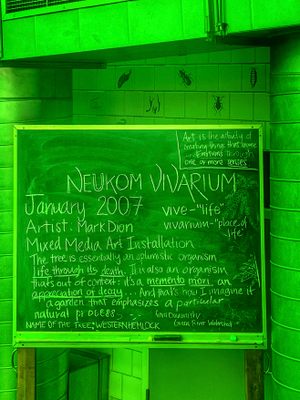 Art is the activity of
creating things that arouse
Emotions through
one or more senses
NEUKOM VIVARIUM
January 2007
vive-"life"
Artist: Mark Dion
vivarium-"place of
life"
Mixed Media Art Installation
The tree is essentially an
organism
life through its death. It is also an organism
that's out of context: it's a memento mori, an
appreciation of decay... And that's how I imagine it
"a garden that emphasizes a particular
natural process.
NAME OF THE TREE: WESTERN HEMLOCK
Green River Watershed